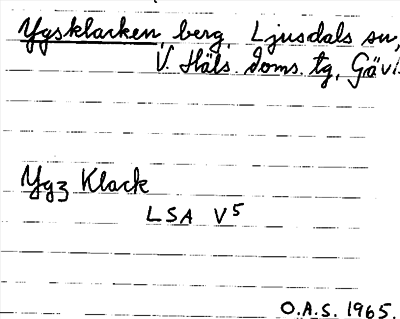 Ygsklacken, berg, Ljusdals sn,
V. Häls. doms. tg, Gävl.
Ygz Klack
LSA V5
O.A.S. 1965.